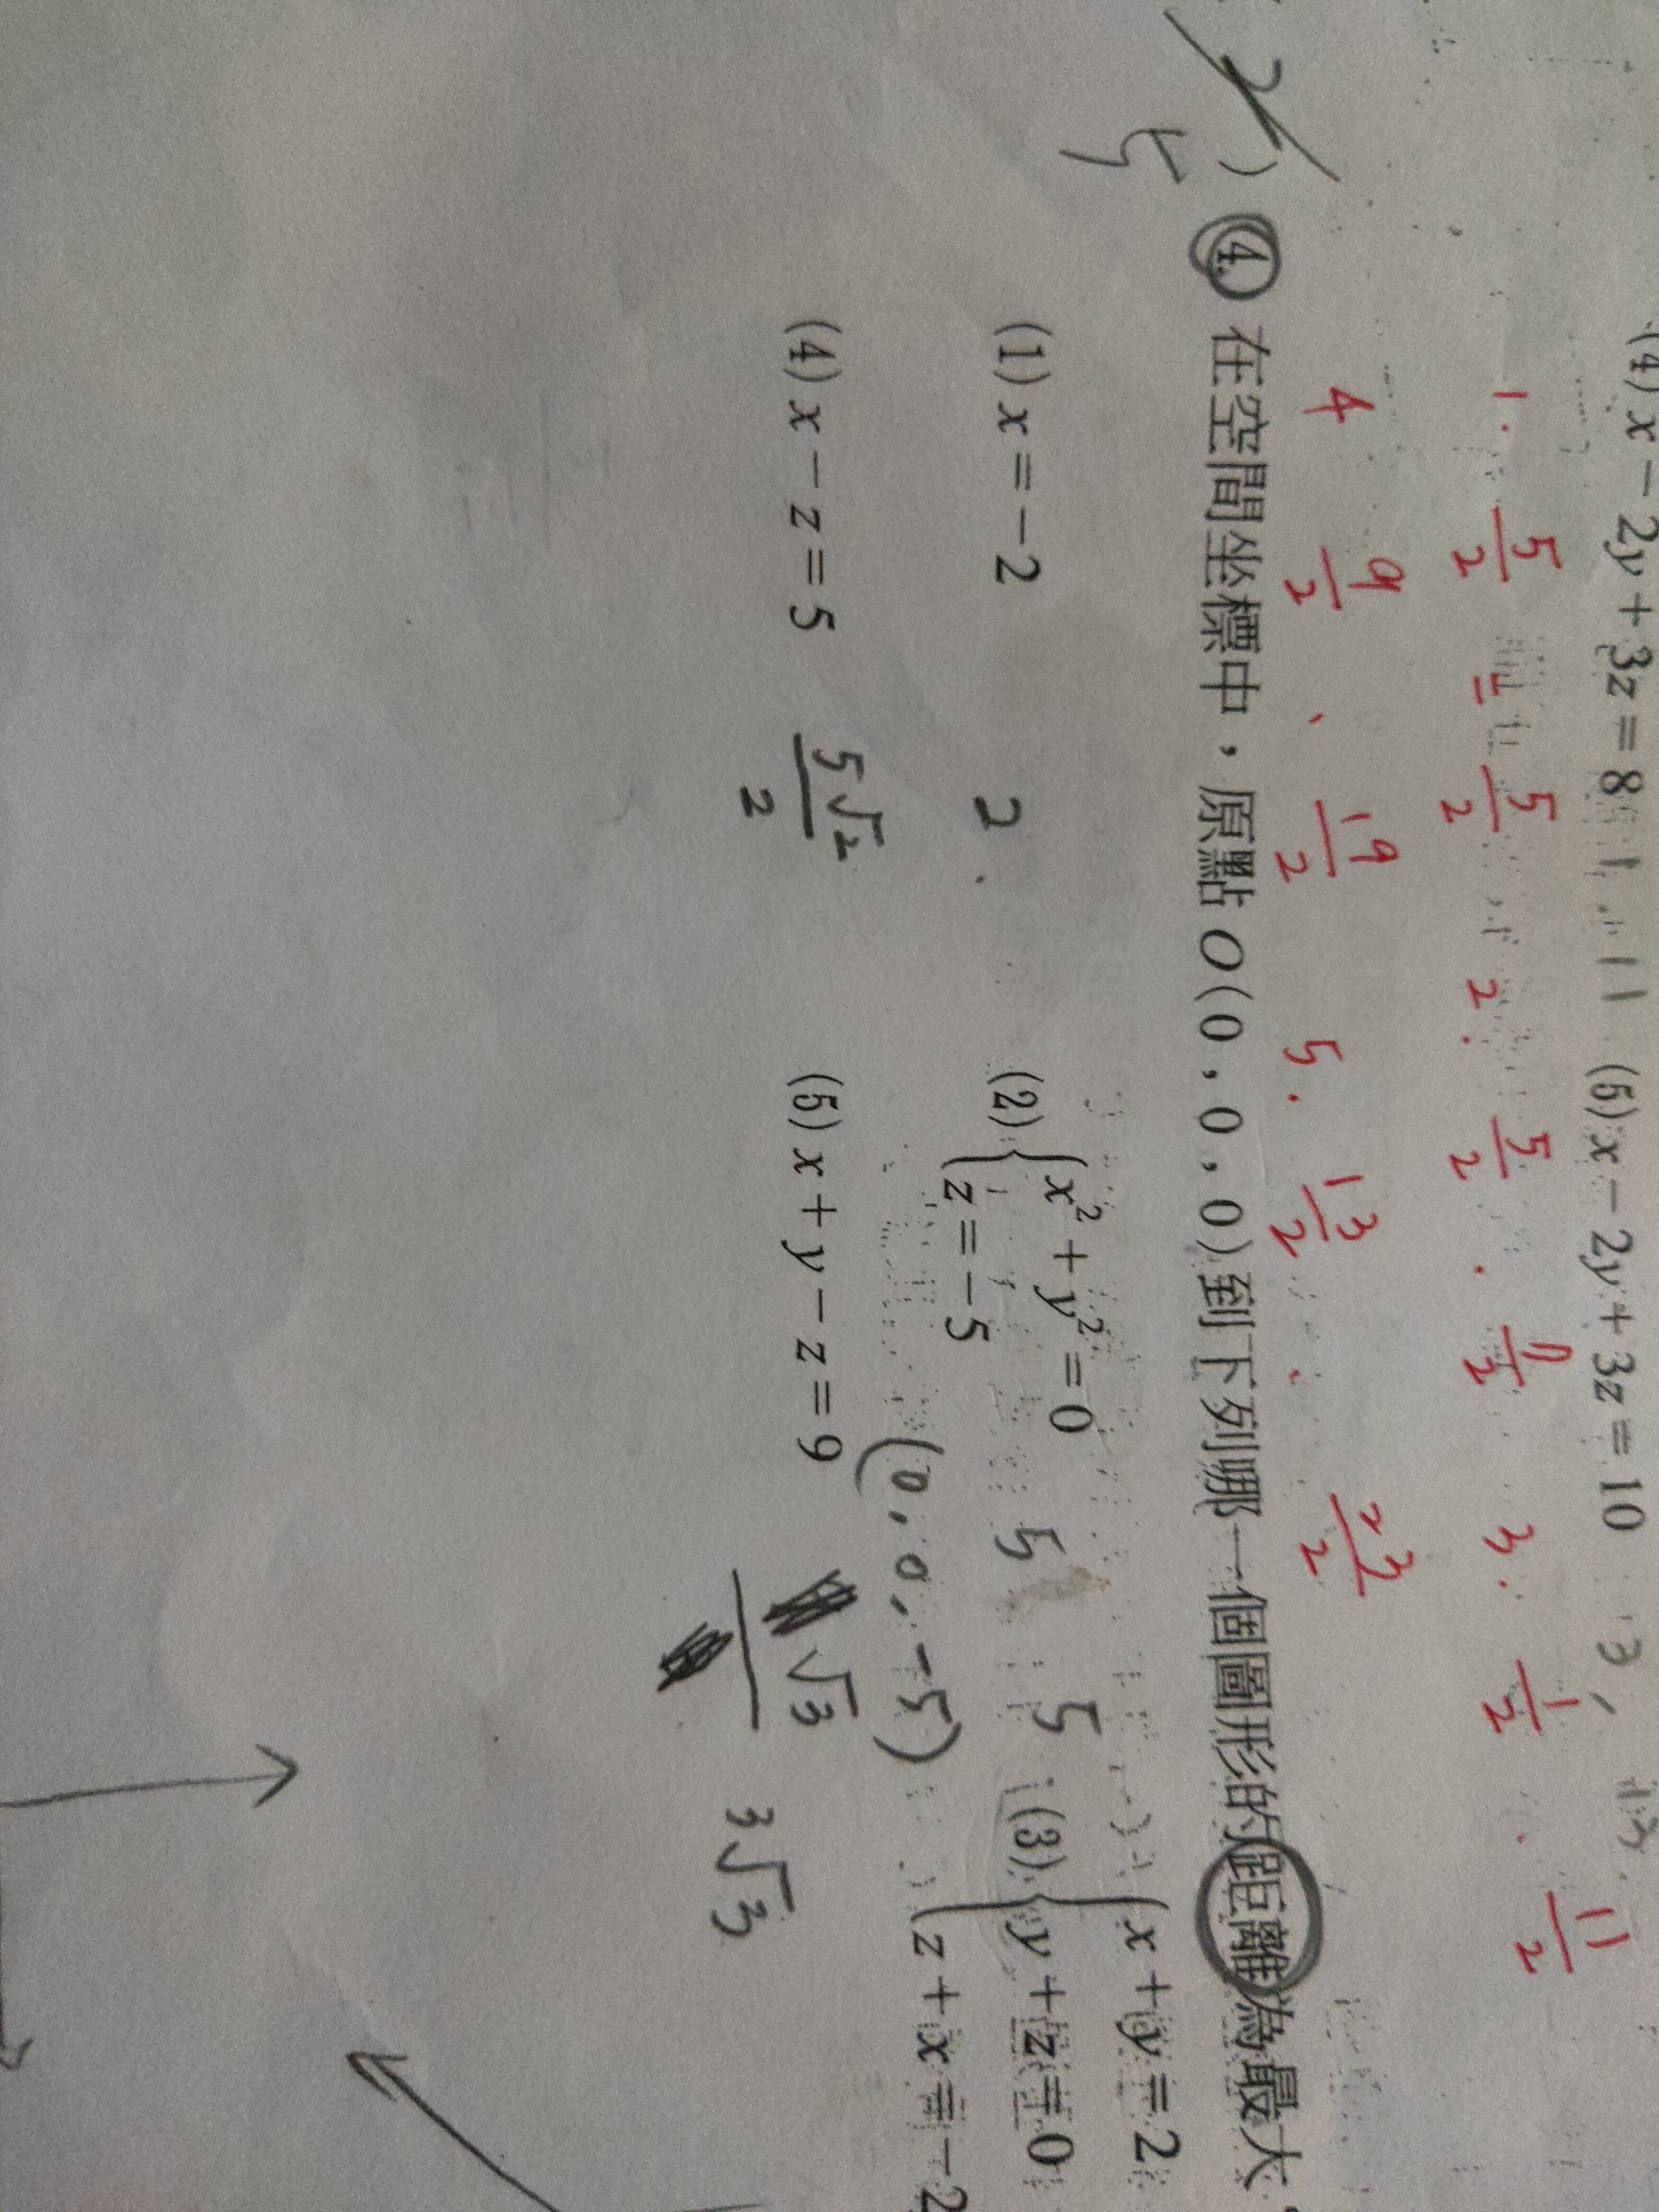 (4) x − 2y + 3z = 8 (5) x − 2y + 3z = 10
1. 5/2 = 5/2 2. 5/2 . 3. 1/2 . 11/2
4 9/2 、 19/2 5. 13/2 .
2 ) 4. 在空間坐標中，原點 O(0，0，0)到下列哪一個圖形的距離為最大
5
(1) x = −2 2. (2) { x² + y² = 0 z = −5 5 5 (3) { x + y = 2 y + z = 0 z + x = −2
(0, 0, −5)
(4) x − z = 5 5√2/2 (5) x + y − z = 9 √3 3√3